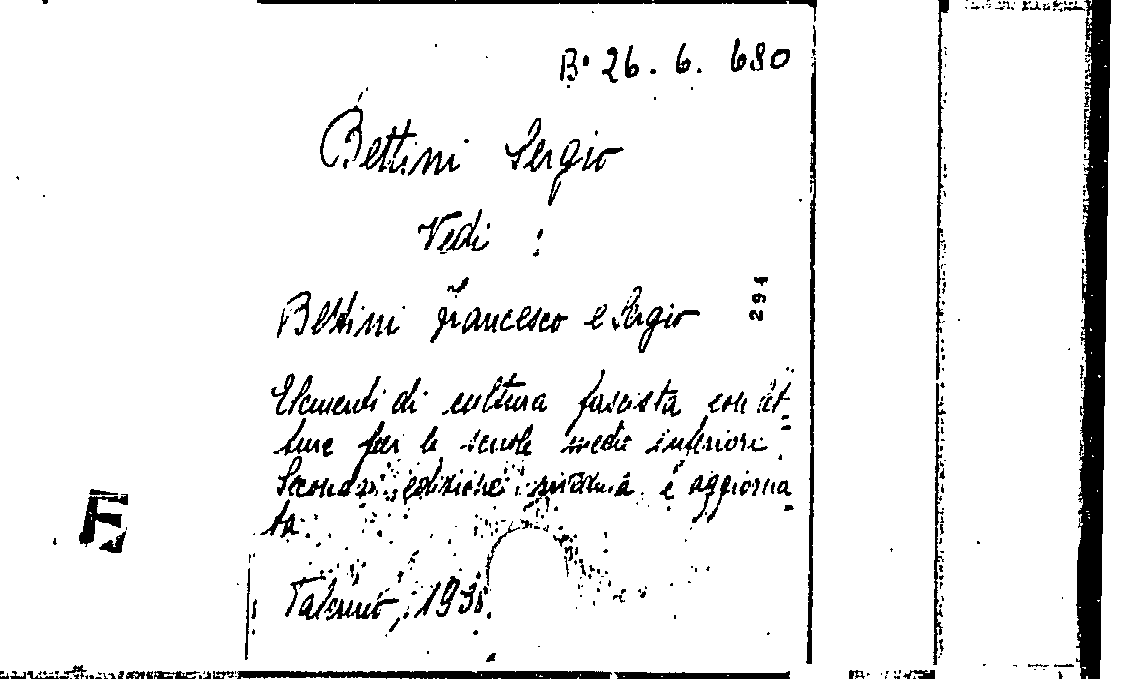 B° 26. 6. 680
Bettini Sergio
Vedi :
Bettini Francesco e Sergio
294
Elementi di cultura fascista con let-
ture per le scuole medie inferiori.
Seconda edizione riveduta e aggiorna-
ta.
Palermo, 1938.
F